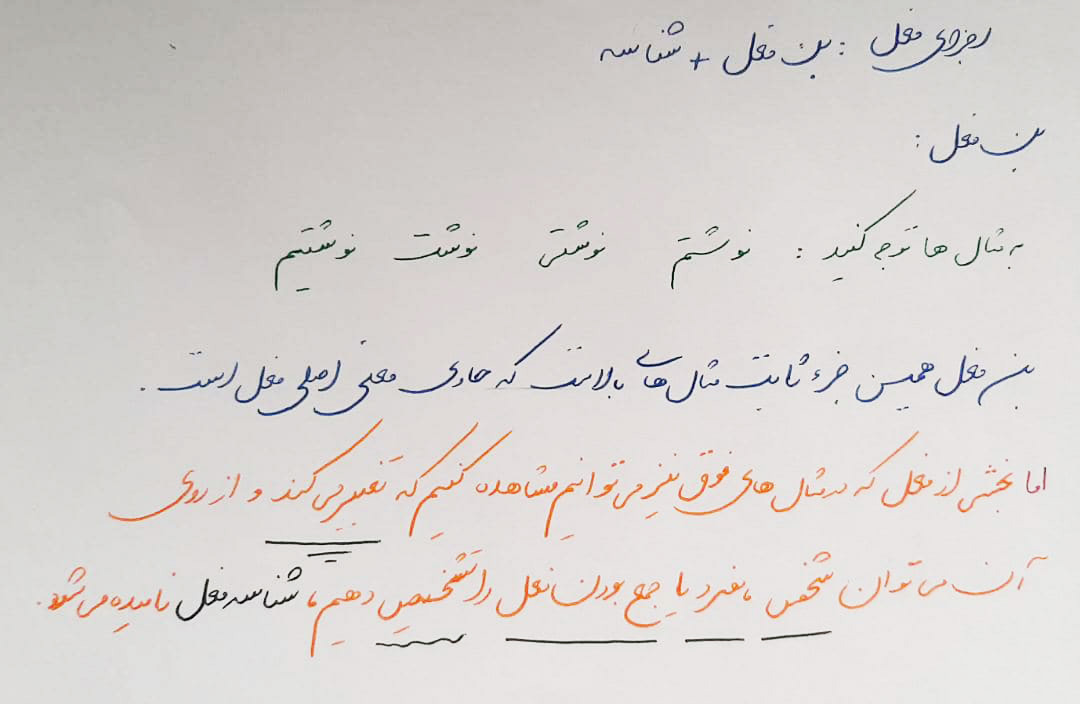 اجزای فعل : بن فعل + شناسه
بن فعل :
به مثال ها توجه کنید : نوشتم نوشتی نوشت نوشتیم
بن فعل همین جزء ثابت مثال های بالاست که حاوی معنی اصلی فعل است .
اما بخشی از فعل که در مثال های فوق نیز می توانیم مشاهده کنیم که تغییر می کند و از روی
آن می توان شخص ، مفرد یا جمع بودن فعل را تشخیص دهیم ، شناسه فعل نامیده می شود .